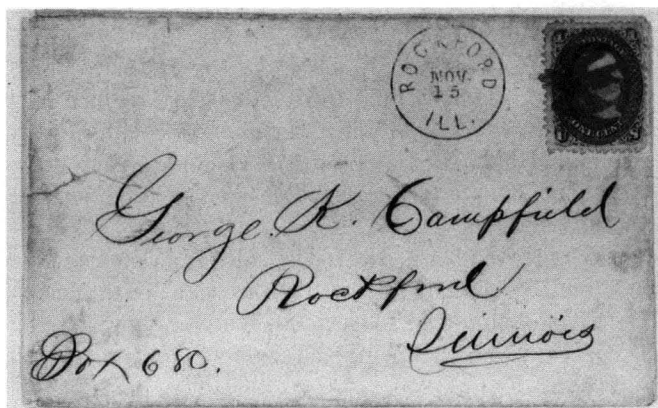 ROCKFORD
NOV.
15
ILL.
ONE CENT
George. K. Campfield
Rockford
Illinois
Box 680.